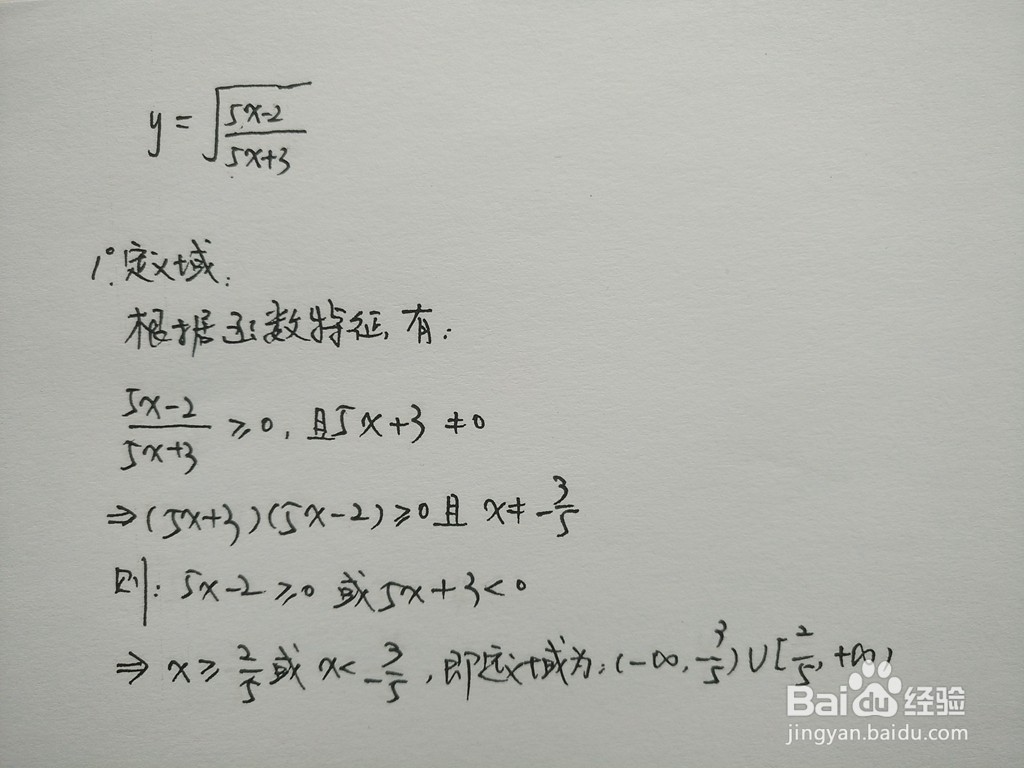 y = √((5x-2)/(5x+3))
1°.定义域:
根据函数特征,有:
(5x-2)/(5x+3) ≥0, 且5x+3 ≠0
⇒(5x+3)(5x-2)≥0且 x≠-3/5
则: 5x-2≥0 或5x+3<0
⇒ x≥ 2/5 或 x<-3/5 ,即定义域为:(-∞,-3/5)∪[2/5,+∞)
Baidu经验
jingyan.baidu.com